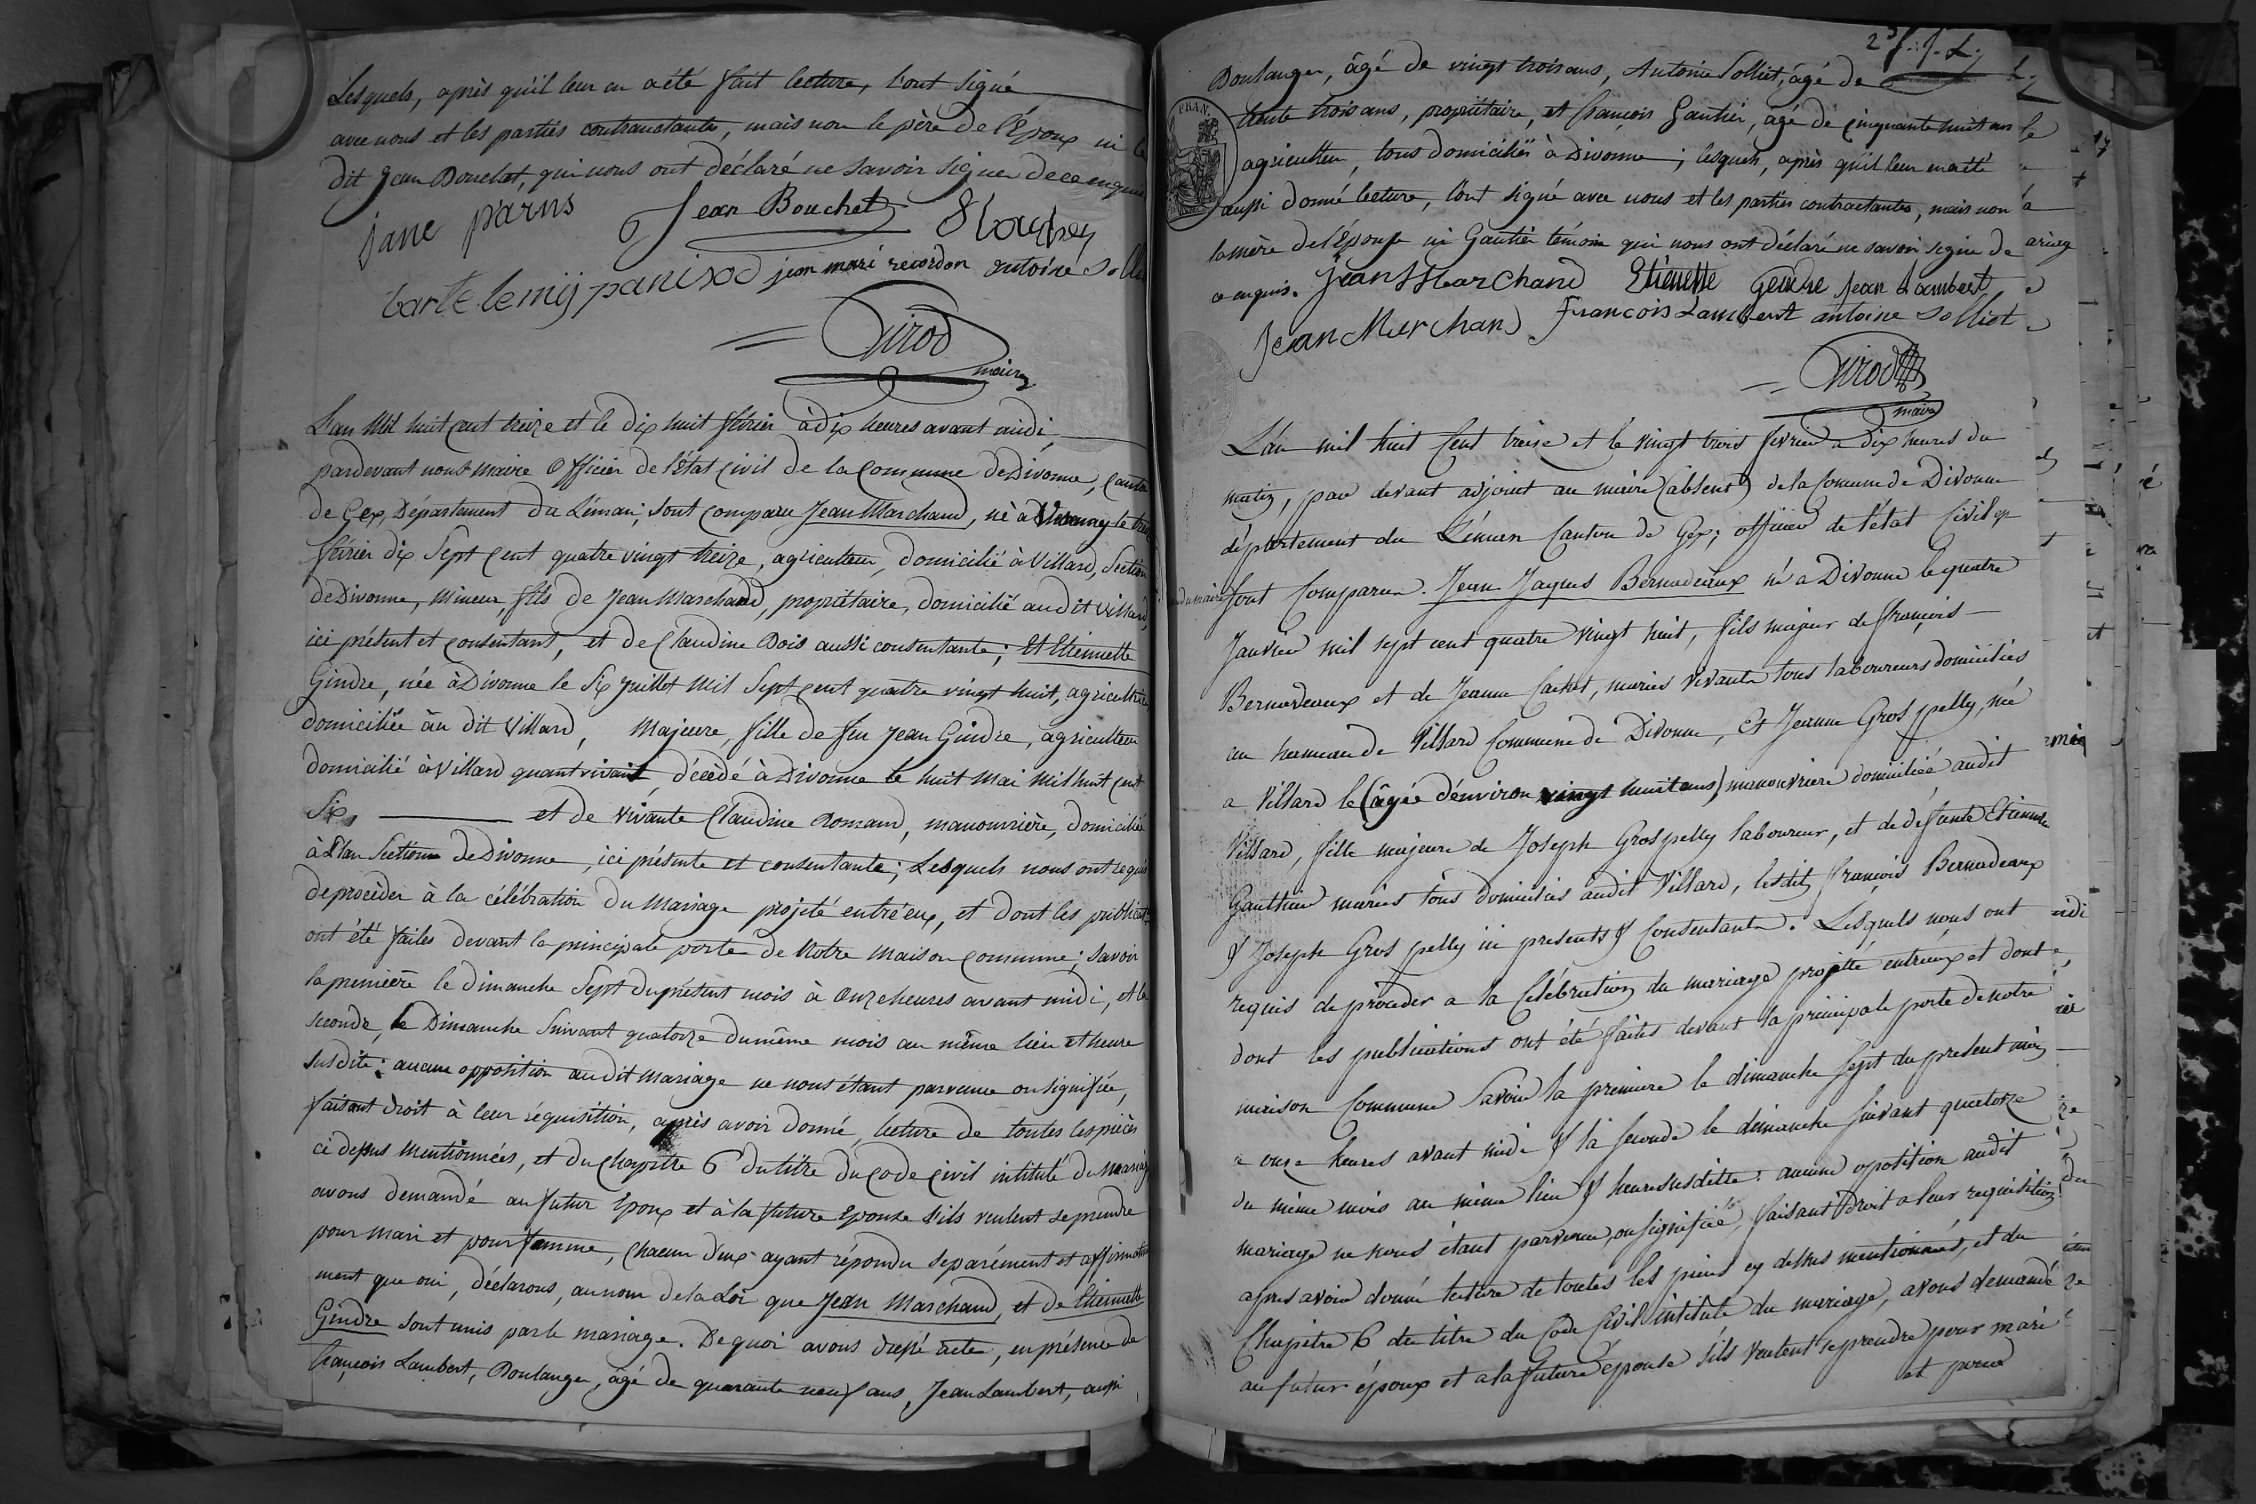 Lesquels, après qu'il leur en a été fait lecture, l'ont signé
avec nous et les parties contractantes, mais non le père de l'Epoux ni le
dit Jean Bouchet, qui nous ont déclaré ne savoir signer de ce enquis
Jean Bouchet
jean mari recordon antoine Solliet
Girod
maire
L'an Mil huit cent treize et le dix huit février à dix heures avant midi,
pardevant nous Maire Officier de l'état civil de la Commune de Divonne, Canton
de Gex, Département du Léman; sont comparu Jean Marchand, né à le
février dix sept cent quatre vingt treize, agriculteur, domicilié à Villard, Section
de Divonne, Mineur, fils de Jean Marchand, propriétaire, domicilié au dit Villard,
ici présent et consentant, et de Claudine Bois aussi consentante; Et Etiennette
Gindre, née à Divonne le Six Juillet Mil Sept cent quatre vingt huit, agricultrice
domiciliée au dit Villard, Majeure, fille de feu Jean Gindre, agriculteur
domicilié à Villard quant vivait décédé à Divonne le huit Mai Mil huit cent
Six, et de vivante Claudine Romand, manouvrière, domiciliée
à Plan Section de Divonne, ici présente et consentante; Lesquels nous ont requis
de procéder à la célébration du Mariage projeté entr'eux, et dont les publications
ont été faites devant la principale porte de Notre Maison commune; savoir
la première le dimanche Sept du présent mois à Onze heures avant midi, et la
seconde, le Dimanche Suivant quatorze du même mois au même lieu et heure
susdite: aucune opposition au dit Mariage ne nous étant parvenue ou signifiée,
faisant droit à leur réquisition, après avoir donné lecture de toutes les pièces
ci dessus Mentionnées, et du Chapitre 6 du titre du Code civil intitulé du Mariage
avons demandé au futur Epoux et à la future Epouse s'ils veulent se prendre
pour mari et pour femme, Chacun d'eux ayant répondu séparément et affirmative
ment que oui, déclarons, au nom de la Loi que Jean Marchand, et de Etiennette
Gindre sont unis par le mariage. De quoi avons dressé acte, en présence de
François Lambert, Boulanger, âgé de quarante neuf ans, Jean Lambert, aussi
Boulanger, âgé de vingt trois ans, Antoine Solliet, âgé de
trente trois ans, propriétaire, et François Gautier, âgé de cinquante huit ans
agriculteur, tous domiciliés à Divonne; lesquels, après qu'il leur en a été
aussi donné lecture, l'ont signé avec nous et les parties contractantes, mais non
la mère de l'Epouse ni Gautier témoin qui nous ont déclaré ne savoir signer de
ce enquis. Jean Marchand Etienette Geindre Jean Lambert
Jean Marchand François Lambert antoine Solliet
Girod
maire
L'an mil huit Cent treise et le vingt trois fevrier a dix heures du
matin, par devant adjoint au maire (absent) de la Comune de Divonne
département du Léman Canton de Gex; officier de l'état Civil
sont Comparu. Jean Jaques Bernadeaux né a Divonne le quatre
Janvier mil sept cent quatre vingt huit, fils majeur de François
Bernardeaux et de Jeanne Cachet, mariés vivants tous laboureurs domiciliés
au hameau de Villard Commune de Divonne, Et Jeanne Grospelly, née
a Villard le (âgée d'environ vingt huit ans) manouvriere domiciliée audit
Villard, fille majeure de Joseph Grospelly laboureur, et de défunte Etiennette
Gauthier mariés tous domiciliés audit Villard, lesdits François Bernadeaux
& Joseph Gros pelly ici presents & Consentants. Lesquels nous ont
requis de procéder a la Célébration du mariage projetté entr'eux et dont
dont les publications ont été faites devant la principale porte de notre
maison Commune Savoir la premiere le dimanche sept du present mois
a onze heures avant midi & la seconde le dimanche suivant quatorze
du même mois au même lieu & heure susditte: aucune oposition audit
mariage ne nous étant parvenue, ou signifiée, faisant droit a leur requisition
apres avoir donné lecture de toutes les pieces cy dessus mentionnées, et du
Chapitre 6 du titre du Code Civil intitulé du mariage, avons demandé
au futur époux et a la future épouse s'ils veulent se prendre pour mari
et pour